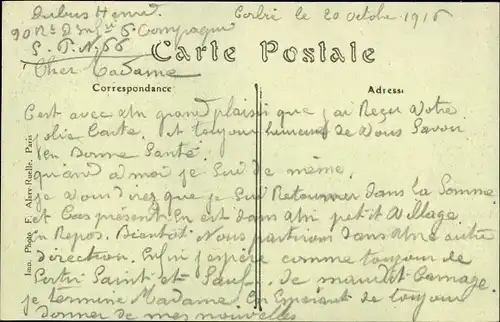 Dubus Henri Corbi le 20 octobre 1916
90 Rt D'Inf 6e Compagni
S. P. N. 66
Carte Postale
Cher Madame
Correspondance Adresse
C'est avec un grand plaisir que j'ai Reçu Votre
Jolie Carte. et toujour heureux de Vous Savoir
en Bonne Santé
quand a moi je Sui de même.
je Vous direz que je Sui Retourner dans la Somme
et Cas présent En est dans un petit Village
en Repos. Bientôt Nous partiron dans Une autre
direction. Enfin j'espère comme toujour de
Sortir Saint et Sauf. de maudit Carnage
je termine Madame En Espérant de toujour
donner de mes nouvelles
Imp. Photo F. Alary-Ruelle, Paris